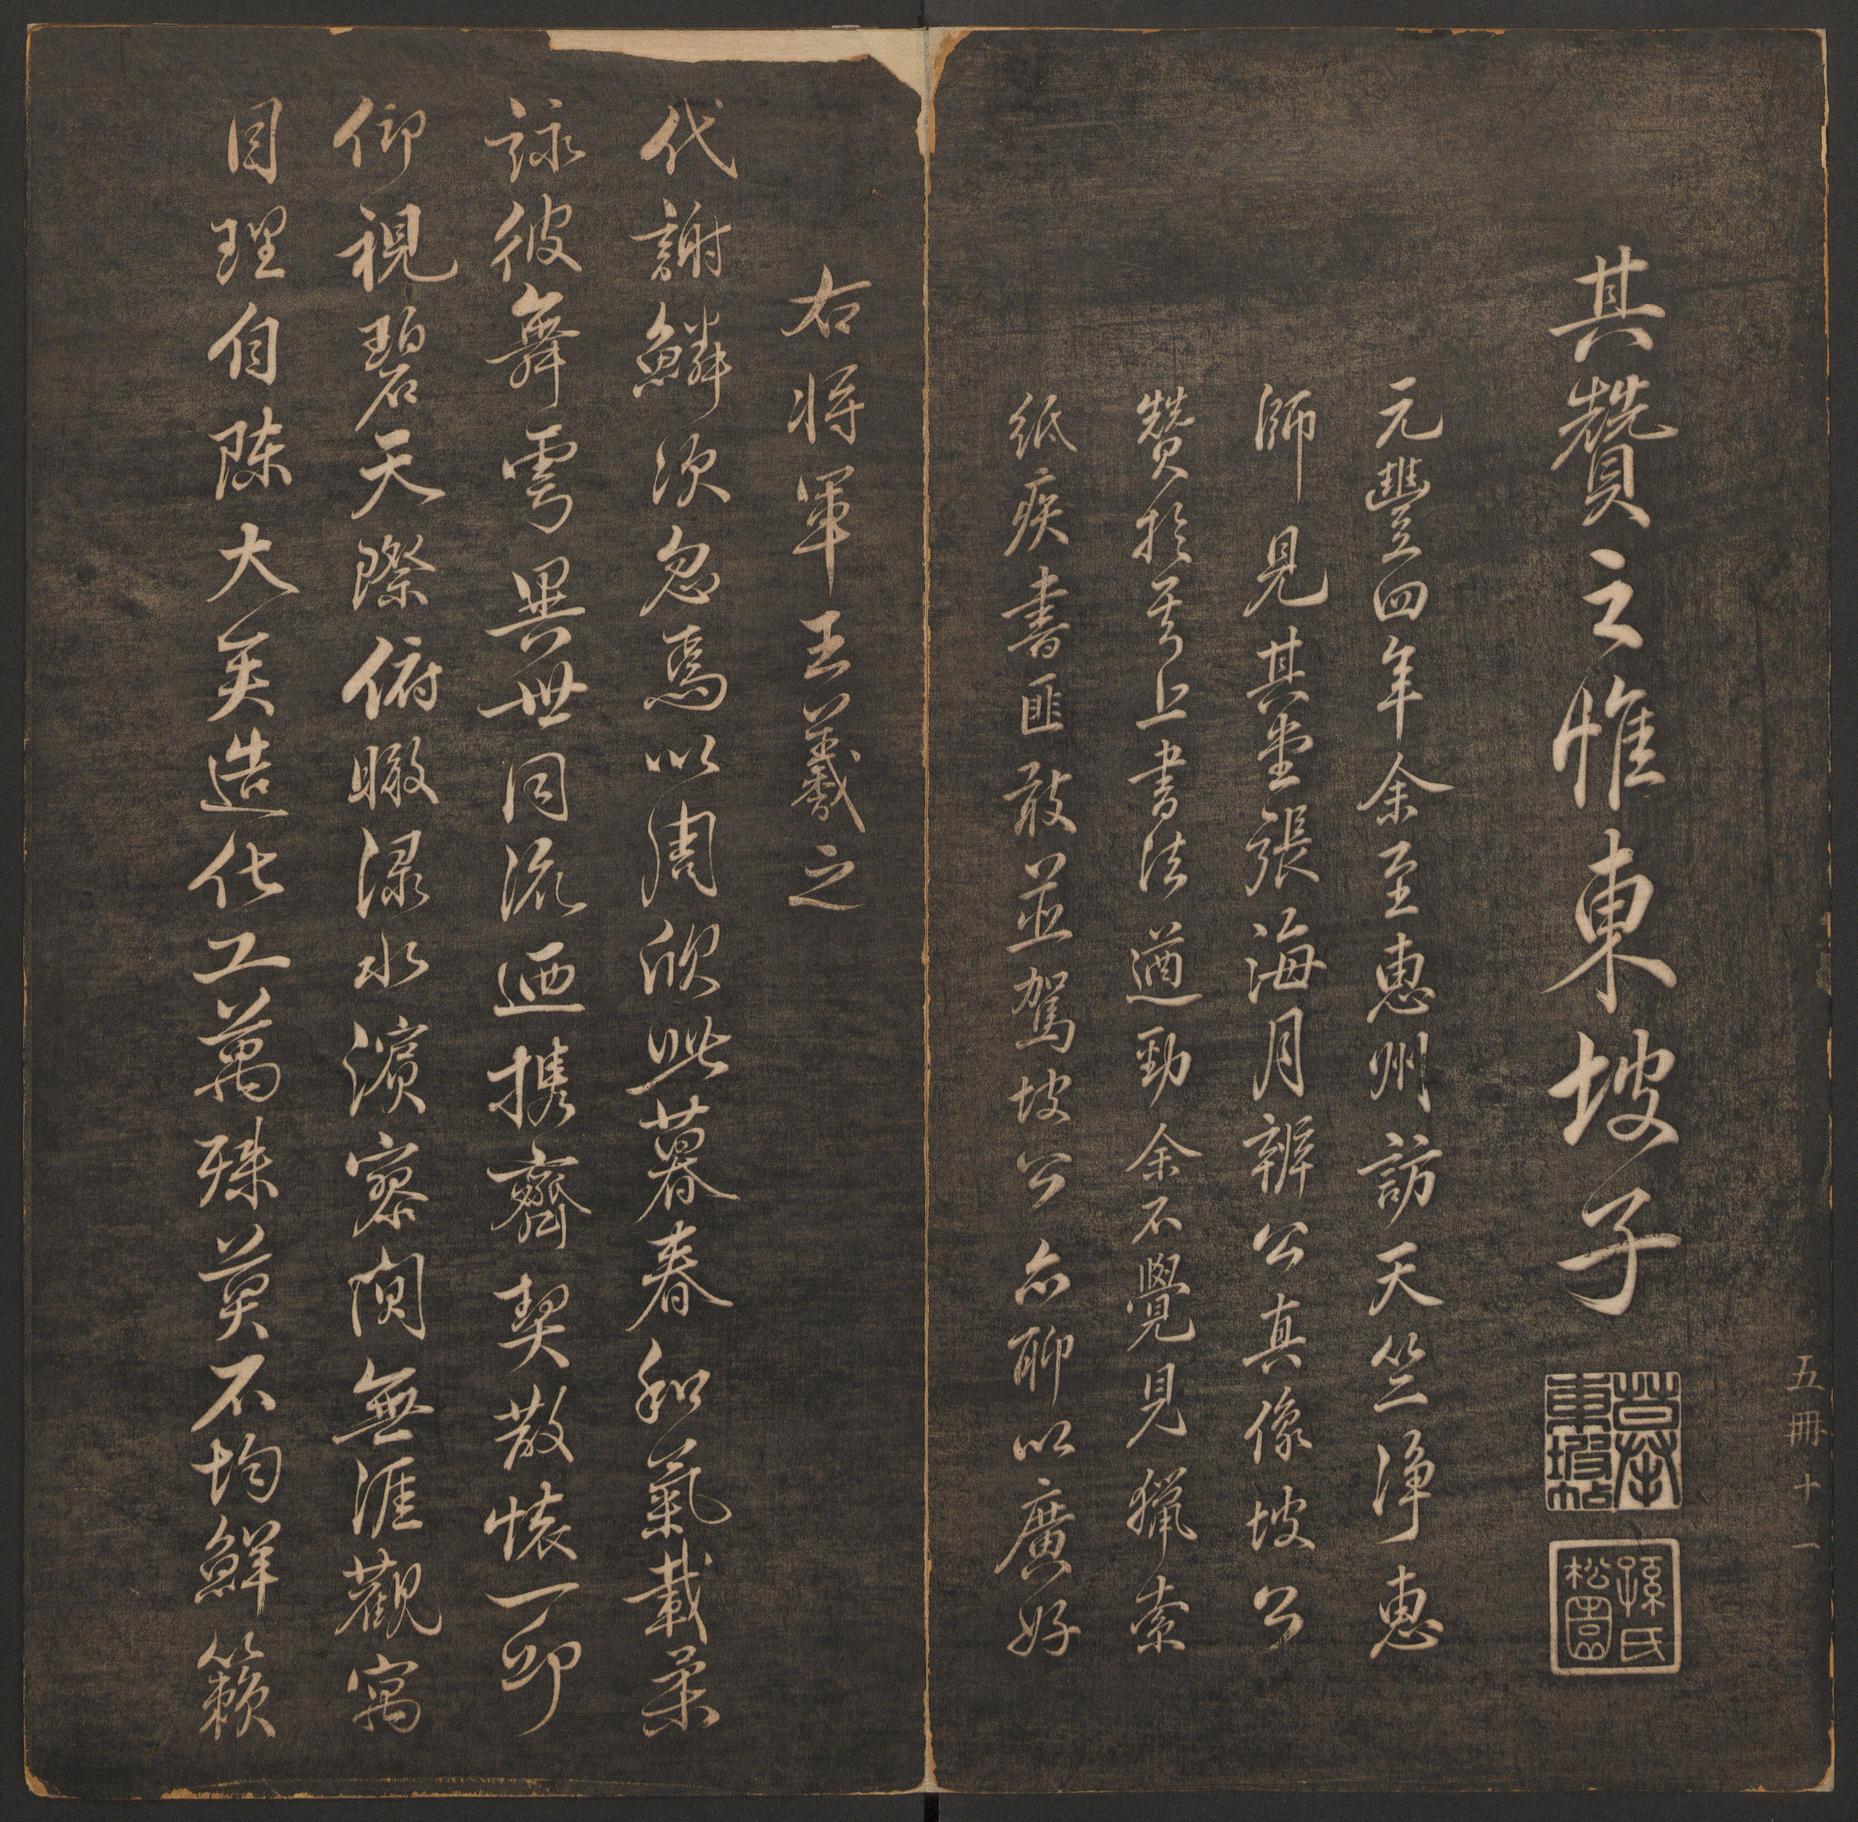 其贊之惟東坡子
五冊十一
孫氏
松園
元豐四年余至惠州訪天竺淨惠
師見其堂張海月辨公真像坡公
贊於其上書法遒勁余不覺見獵索
紙疾書匪敢並駕坡公亦聊以廣好
右將軍王羲之
代謝鱗次忽焉以周欣此暮春和氣載柔
詠彼舞雩異世同流迺攜齊契散懷一邱
仰視碧天際俯瞰淥水濱寥闃無涯觀寓
目理自陳大矣造化工萬殊莫不均鮮籟